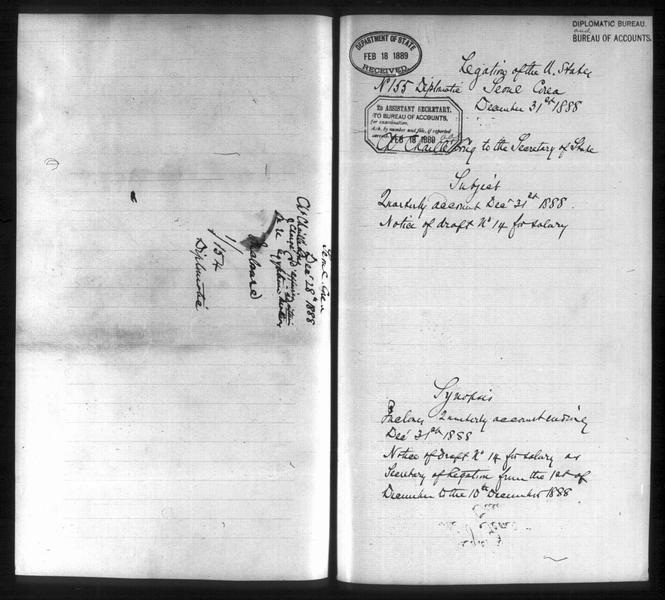 DIPLOMATIC BUREAU.
and
BUREAU OF ACCOUNTS.
DEPARTMENT OF STATE
FEB 18 1889
RECEIVED
Legation of the U. States
No 155 Diplmatic Seoul Corea
December 31st 1888
TO ASSISTANT SECRETARY.
TO BUREAU OF ACCOUNTS,
for examination.
Ack. by number and file, if reported
correct.
FEB 18 1889
Chs Chaillé Long to the Secretary of State
Subject
Quarterly account Dec 31st 1888
Notice of draft No 14 for salary
Synopsis
Incloses Quarterly account ending
Dec 31st 1888
Notice of draft No 14 for salary as
Secretary of Legation from the 1st of
December to the 10th December 1888
Seoul Corea
Dec 28th 1888
Chs Chaillé Long
Chargé d'affaires
Inclosure
1/
154
Diplmatic